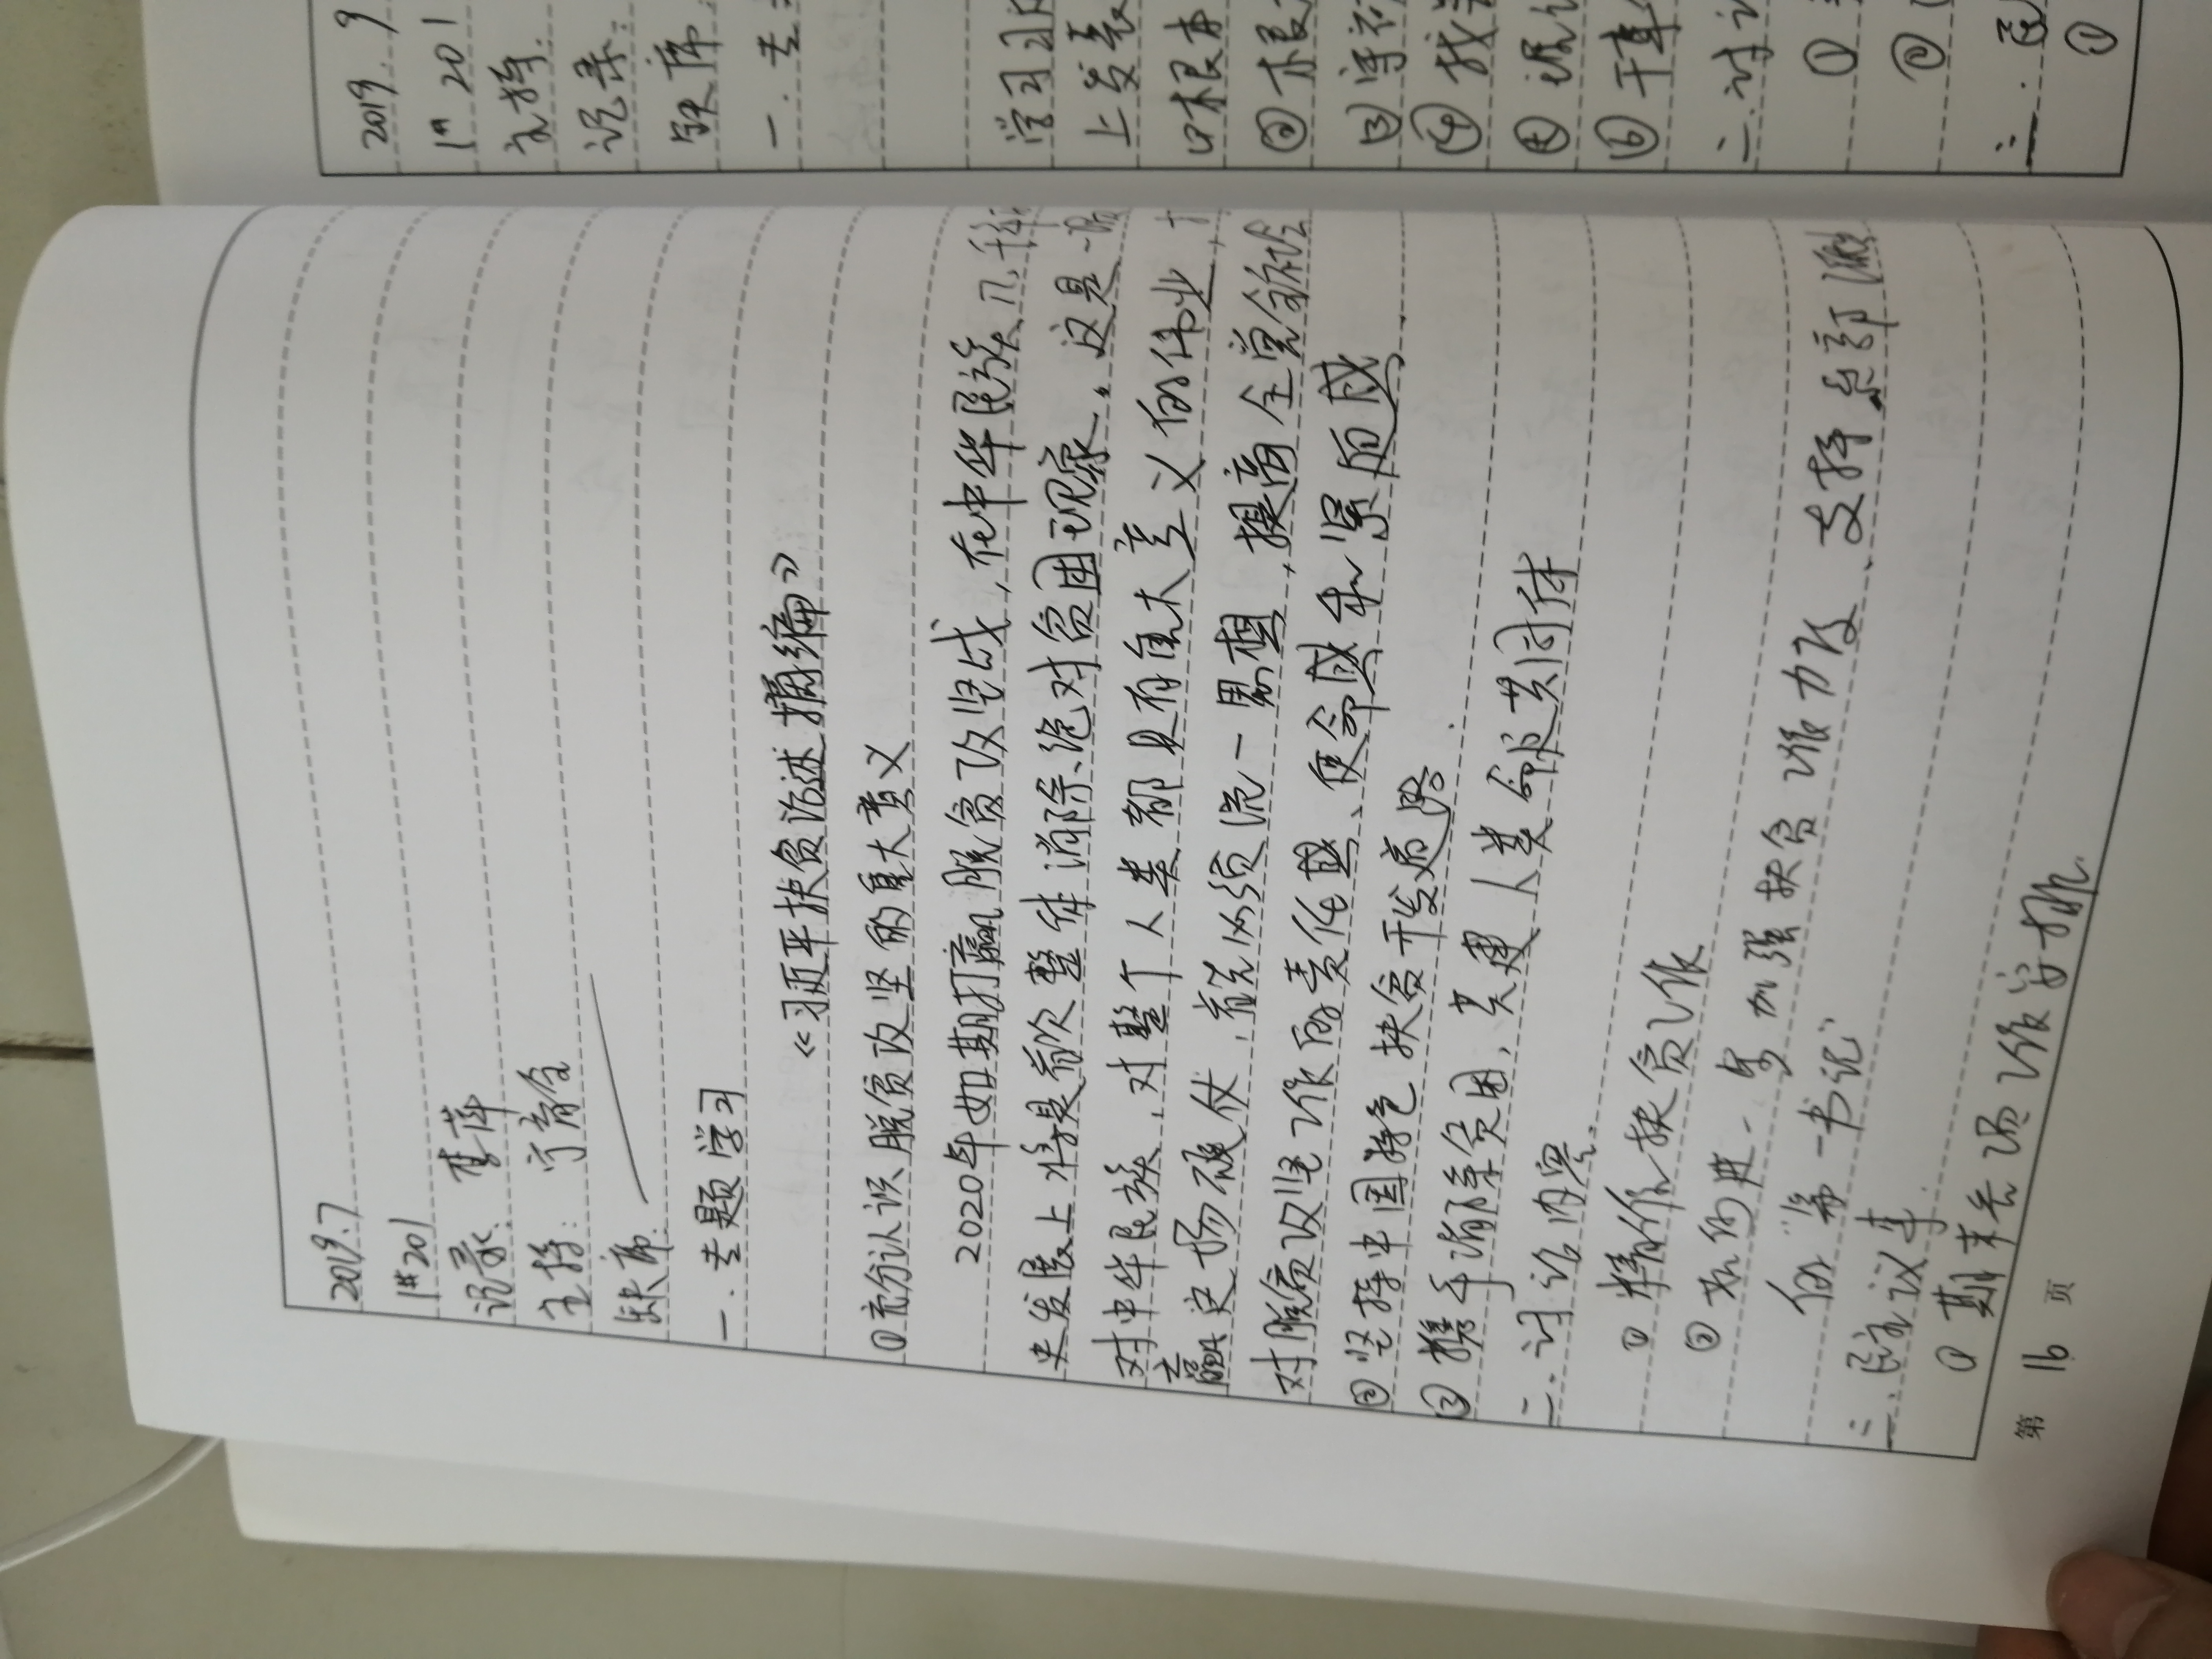 2019.7
1#201
记录: 李萍
主持: 宁育全
缺席:
一. 主题学习
《习近平扶贫论述摘编》
①充分认识脱贫攻坚的重大意义
2020年如期打赢脱贫攻坚战,在中华民族几千年
史发展上将是首次整体消除绝对贫困现象,。这是一
对中华民族、对整个人类都具有重大意义的伟业,
之赢 这场硬仗,首先必须统一思想,提高全党全社会
对脱贫攻坚工作的责任感、使命感和紧迫感.
②坚持中国特色扶贫开发道路.
③携手消除贫困,共建人类命运共同体
二.讨论内容.
① 精准扶贫工作
② 如何进一步加强扶贫工作力度、支持系部派
的"第一书记"
三.民主议事.
① 期末考场工作安排.
第 16 页
2019. 9
1# 201
主持:
记录:
缺席:
一. 主
学习习
上发表
①根本
②根
③
④找
⑤
⑥干事
二.讨论
①
②
三.民
①